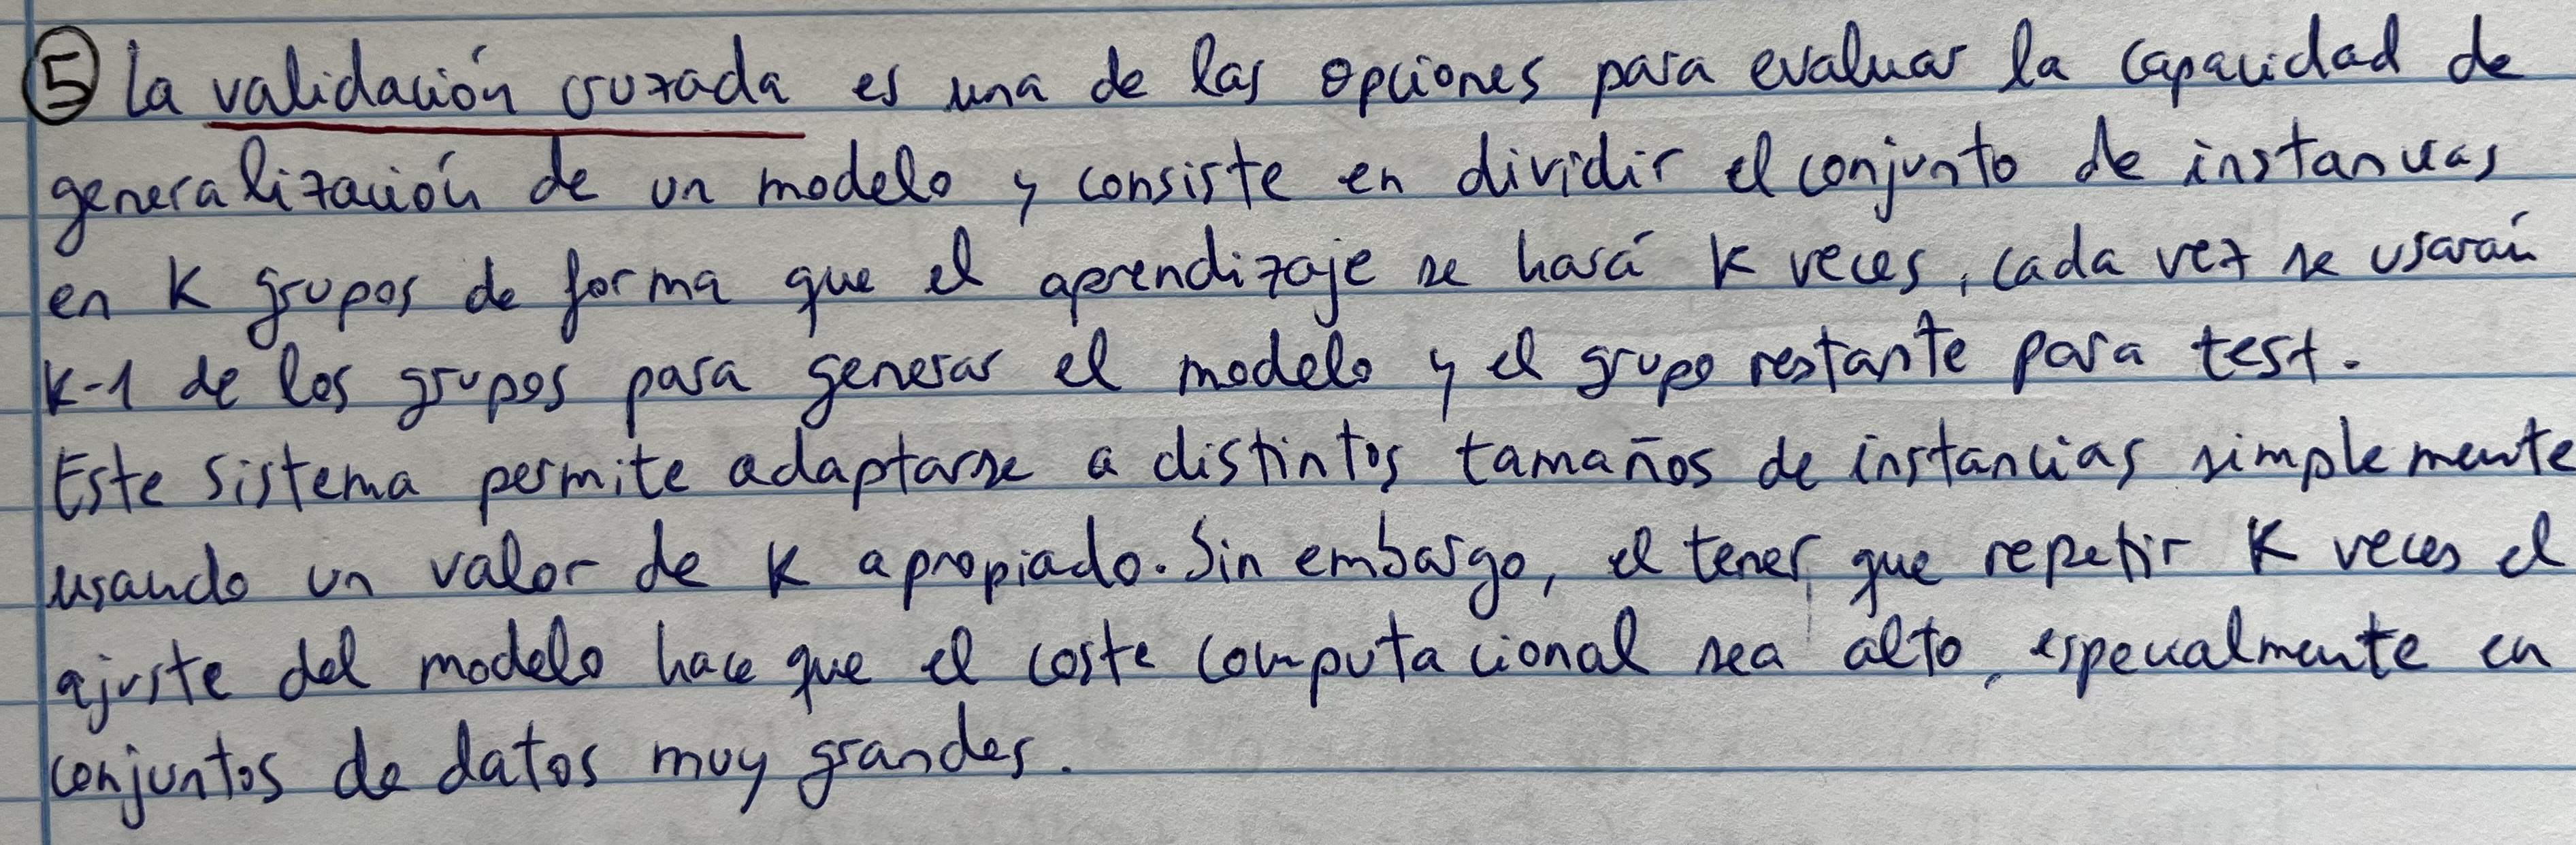 ⑤ La validación cruzada es una de las opciones para evaluar la capacidad de
generalización de un modelo y consiste en dividir el conjunto de instancias
en K grupos de forma que el aprendizaje se hará K veces, cada vez se usarán
K-1 de los grupos para generar el modelo y el grupo restante para test.
Este sistema permite adaptarse a distintos tamaños de instancias simplemente
usando un valor de K apropiado. Sin embargo, el tener que repetir K veces el
ajuste del modelo hace que el coste computacional sea alto, especialmente en
conjuntos de datos muy grandes.